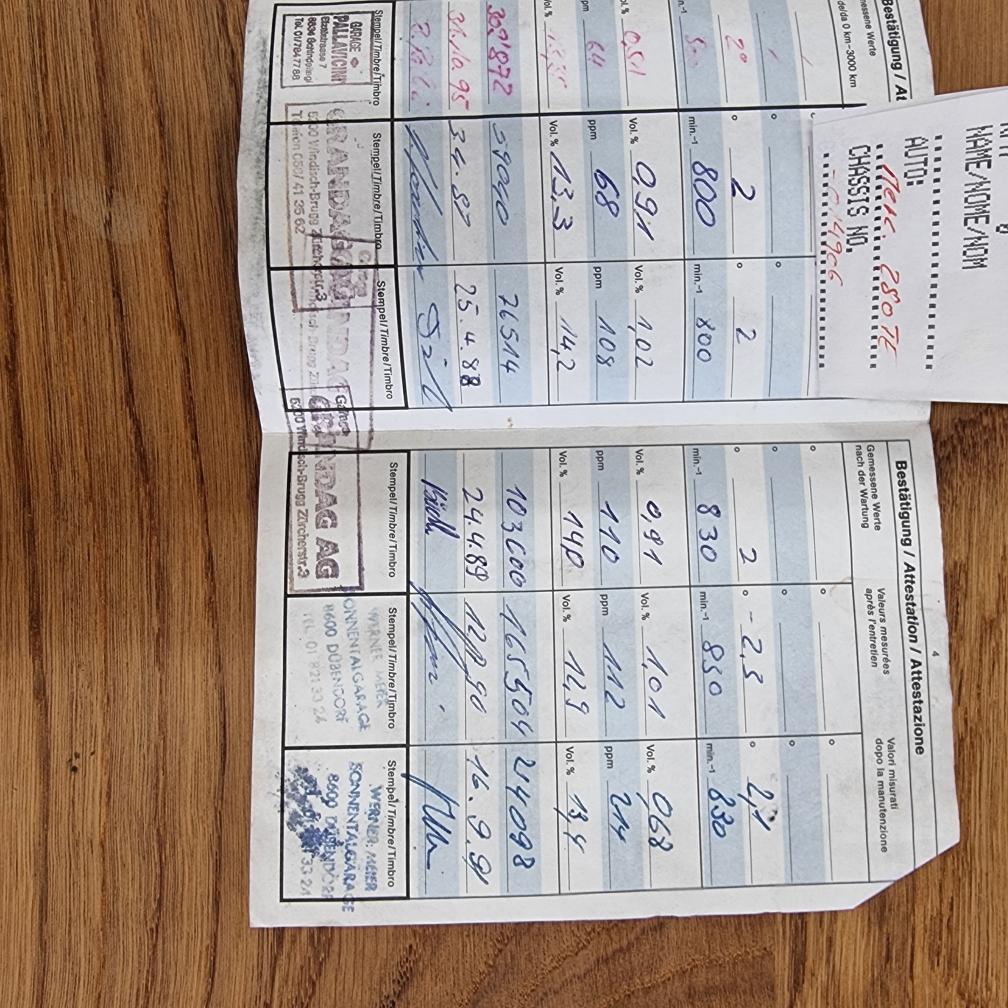 NAME/NOME/NOM
AUTO:
Merc. 280 TE
CHASSIS NO.
Bestätigung / At
messene Werte
0 km-3000 km
2°
min.-1
0,51
Vol. %
64
ppm
Vol. %
31.10.95
Stempel/Timbre/Timbro
GARAGE
PALLAVICINI
Tel. 01/7847788
2
min.-1 800
Vol. % 0,91
ppm 68
Vol. % 13,3
59040
Stempel/Timbre/Timbro
GRANDAG AG
5200 Windisch-Brugg Zürcherstr.3
Telefon 056/41 35 62
2
min.-1 800
Vol. % 1,02
ppm 108
Vol. % 14,2
76514
25.4.88
Stempel/Timbre/Timbro
Garage
GRANDAG AG
5200 Windisch-Brugg Zürcherstr.3
4
Bestätigung / Attestation / Attestazione
Gemessene Werte
nach der Wartung
Valeurs mesurées
après l'entretien
Valori misurati
dopo la manutenzione
2
min.-1 830
Vol. % 0,91
ppm 110
Vol. % 14,0
103600
24.4.89
Stempel/Timbre/Timbro
-2,3
min.-1 850
Vol. % 1,01
ppm 112
Vol. % 12,9
165504
Stempel/Timbre/Timbro
WERNER MEIER
SONNENTALGARAGE
8600 DÜBENDORF
TEL. 01 821 33 24
2,1
min.-1 830
Vol. % 0,68
ppm 214
Vol. % 13,4
214098
16.9.91
Stempel/Timbre/Timbro
WERNER MEIER
SONNENTALGARAGE
8600 DÜBENDORF
33 24